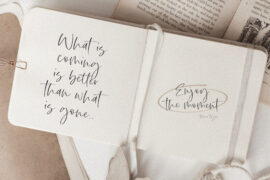 What is
coming
is better
than what
is gone.
Enjoy
the moment